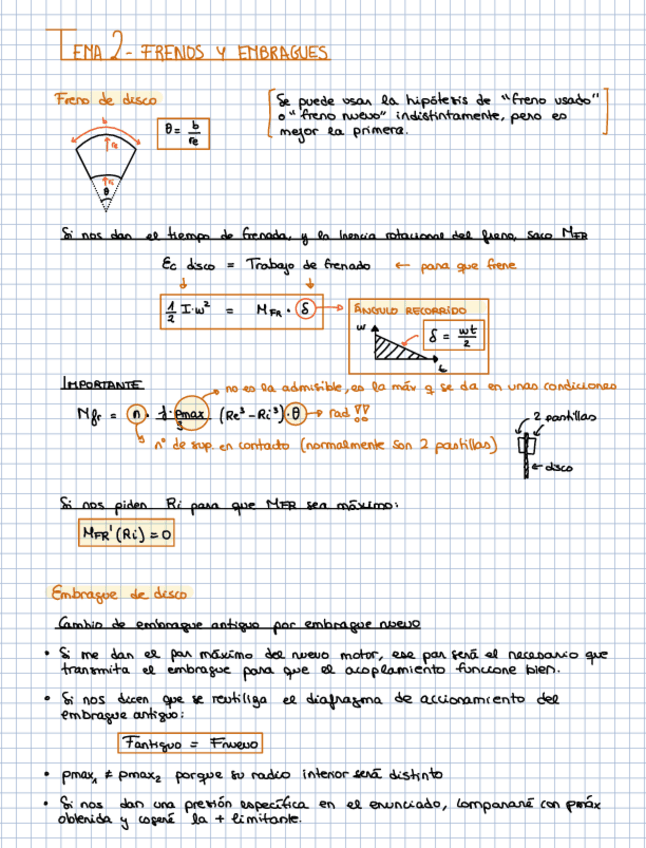 TEMA 2 - FRENOS Y EMBRAGUES
Freno de disco
b
re
ri
θ
θ = b/re
Se puede usar la hipótesis de "freno usado"
o "freno nuevo" indistintamente, pero es
mejor la primera.
Si nos dan el tiempo de frenada, y la inercia rotacional del freno, saco MFR
Ec disco = Trabajo de frenado ← para que frene
1/2 I·w² = MFR · δ
ÁNGULO RECORRIDO
w
δ = wt/2
t
IMPORTANTE
no es la admisible, es la máx q se da en unas condiciones
Mfr = n · f·pmax/3 (Re³-Ri³)·θ → rad!!
nº de sup. en contacto (normalmente son 2 pastillas)
2 pastillas
disco
Si nos piden Ri para que MFR sea máximo:
MFR'(Ri) = 0
Embrague de disco
Cambio de embrague antiguo por embrague nuevo
• Si me dan el par máximo del nuevo motor, ese par será el necesario que
transmita el embrague para que el acoplamiento funcione bien.
• Si nos dicen que se reutiliza el diafragma de accionamiento del
embrague antiguo:
Fantiguo = Fnuevo
• pmax₁ ≠ pmax₂ porque su radio interior será distinto
• Si nos dan una presión específica en el enunciado, compararé con pmáx
obtenida y cogeré la + limitante.